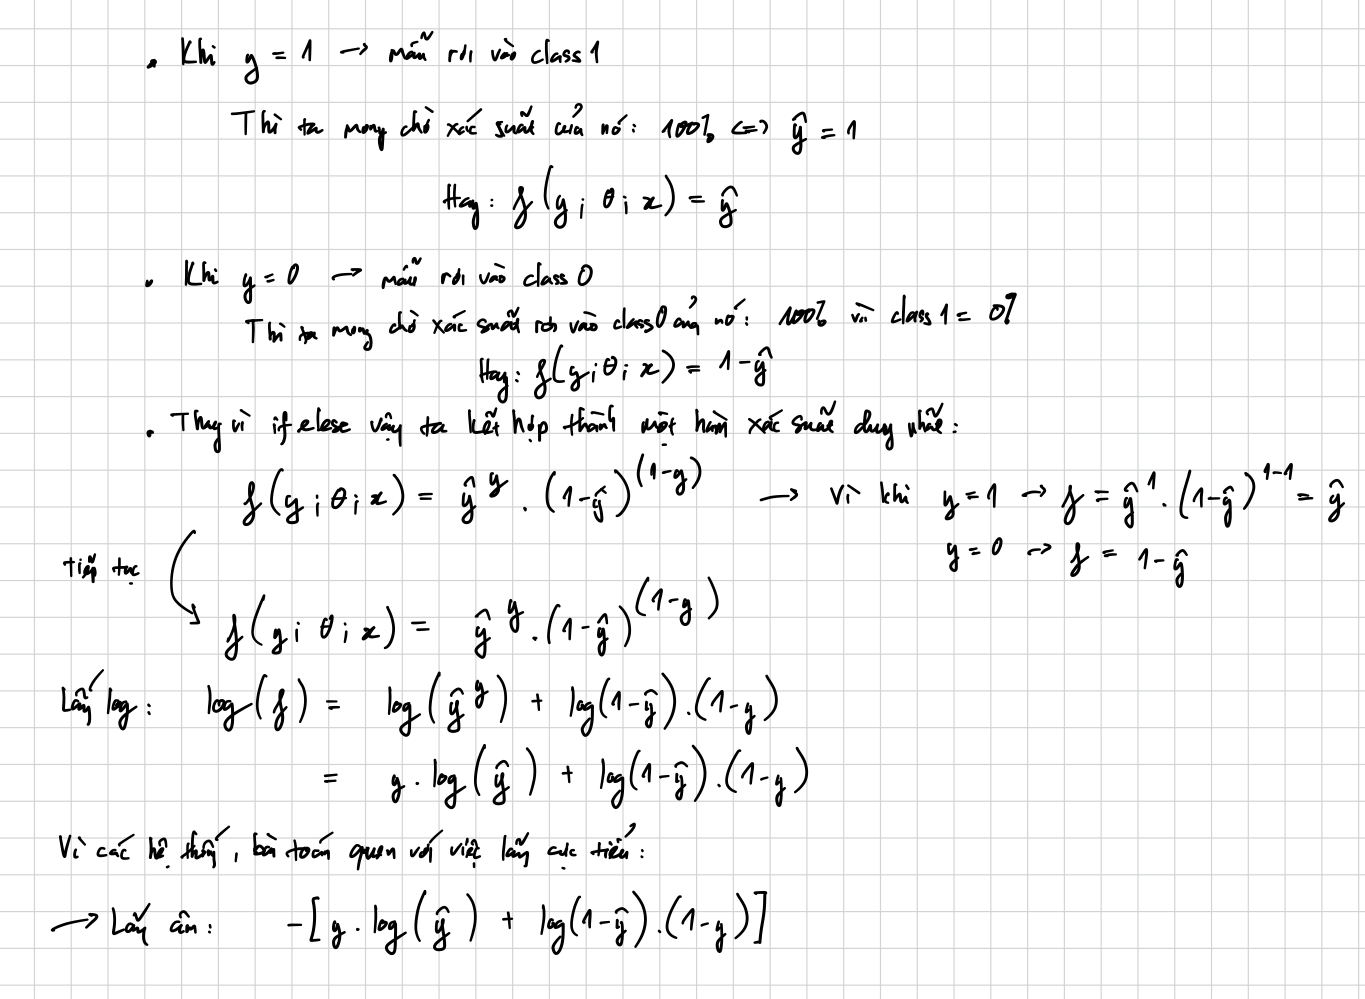 . Khi y = 1 → mẫu rơi vào class 1
Thì ta mong chờ xác suất của nó: 100% <=> ŷ = 1
Hay: f(y; θ; x) = ŷ
. Khi y = 0 → mẫu rơi vào class 0
Thì ta mong chờ xác suất rơi vào class 0 của nó: 100% vì class 1 = 0%
Hay: f(y; θ; x) = 1 - ŷ
. Thay vì if elese vậy ta kết hợp thành một hàm xác suất duy nhất:
f(y; θ; x) = ŷ^y . (1-ŷ)^(1-y) → Vì khi y = 1 → f = ŷ^1 . (1-ŷ)^1-1 = ŷ
y = 0 → f = 1 - ŷ
tiếp tục
f(y; θ; x) = ŷ^y . (1-ŷ)^(1-y)
Lấy log: log(f) = log(ŷ^y) + log(1-ŷ).(1-y)
= y . log(ŷ) + log(1-ŷ).(1-y)
Vì các hệ thống, bài toán quen với việc lấy cực tiểu:
→ Lấy âm: -[y . log(ŷ) + log(1-ŷ).(1-y)]